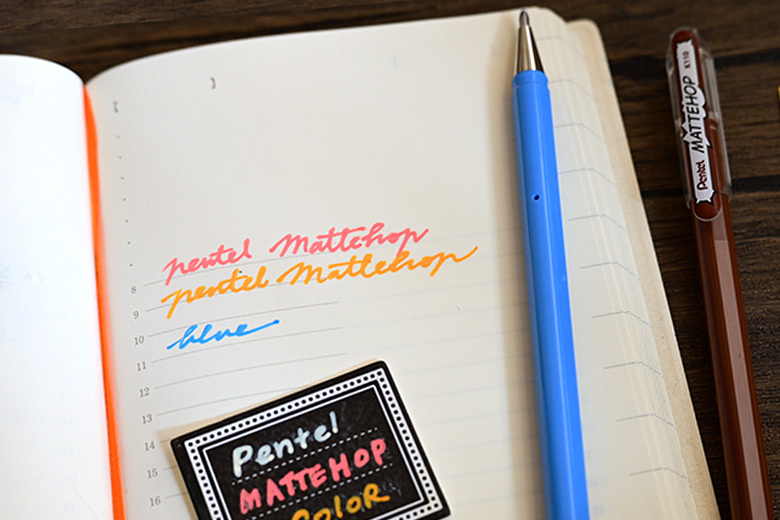 pentel Mattehop
8 pentel Mattehop
9
10 blue
11
12
13
14
15
16
Pentel
MATTEHOP
COLOR
Pentel MATTEHOP K110